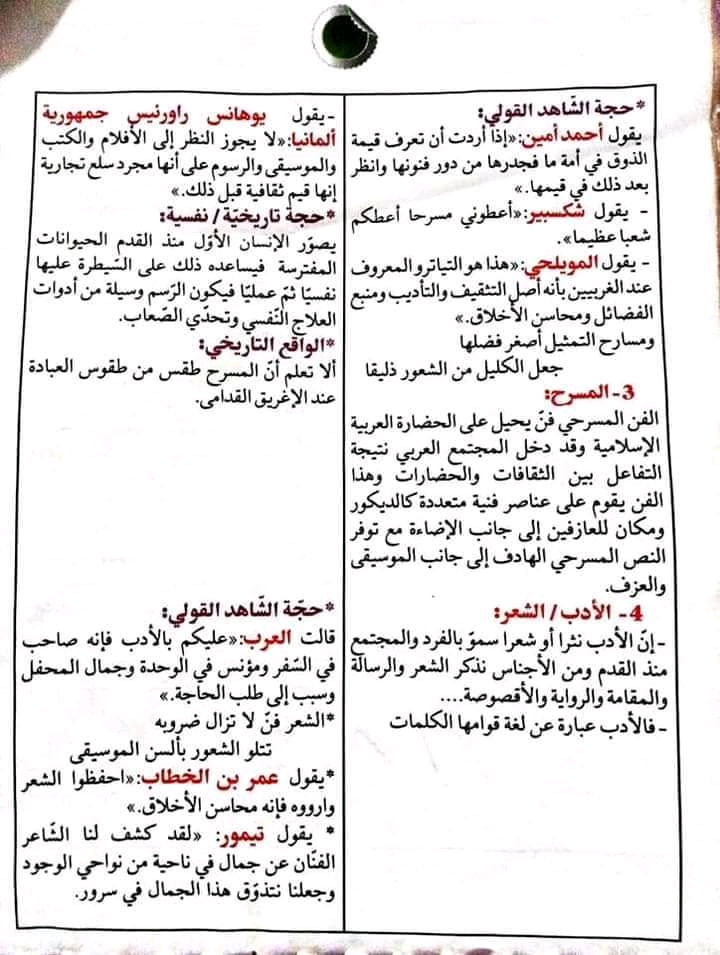 *حجة الشّاهد القولي:
يقول أحمد أمين:«إذا أردت أن تعرف قيمة
الذوق في أمة ما فجدرها من دور فنونها وانظر
بعد ذلك في قيمها.»
- يقول شكسبير:«أعطوني مسرحا أعطكم
شعبا عظيما».
- يقول المويلحي:«هذا هو التياترو المعروف
عند الغربيين بأنه أصل التثقيف والتأديب ومنبع
الفضائل ومحاسن الأخلاق.»
ومسارح التمثيل أصغر فضلها
جعل الكليل من الشعور ذليقا
3- المسرح:
الفن المسرحي فنّ يحيل على الحضارة العربية
الإسلامية وقد دخل المجتمع العربي نتيجة
التفاعل بين الثقافات والحضارات وهذا
الفن يقوم على عناصر فنية متعددة كالديكور
ومكان للعازفين إلى جانب الإضاءة مع توفر
النص المسرحي الهادف إلى جانب الموسيقى
والعزف.
4- الأدب/ الشعر:
-إنّ الأدب نثرا أو شعرا سموّ بالفرد والمجتمع
منذ القدم ومن الأجناس نذكر الشعر والرسالة
والمقامة والرواية والأقصوصة....
- فالأدب عبارة عن لغة قوامها الكلمات
-يقول يوهانس راورنيس جمهورية
ألمانيا:«لا يجوز النظر إلى الأفلام والكتب
والموسيقى والرسوم على أنها مجرد سلع تجارية
إنها قيم ثقافية قبل ذلك.»
*حجة تاريخيّة/ نفسية:
يصوّر الإنسان الأوّل منذ القدم الحيوانات
المفترسة فيساعده ذلك على السّيطرة عليها
نفسيّا ثمّ عمليّا فيكون الرّسم وسيلة من أدوات
العلاج النّفسي وتحدّي الصّعاب.
*الواقع التاريخي:
ألا تعلم أنّ المسرح طقس من طقوس العبادة
عند الإغريق القدامى.
*حجّة الشّاهد القولي:
قالت العرب:«عليكم بالأدب فإنه صاحب
في السّفر ومؤنس في الوحدة وجمال المحفل
وسبب إلى طلب الحاجة.»
*الشعر فنّ لا تزال ضروبه
تتلو الشعور بألسن الموسيقى
*يقول عمر بن الخطاب:«احفظوا الشعر
وارووه فإنه محاسن الأخلاق.»
* يقول تيمور: «لقد كشف لنا الشّاعر
الفنّان عن جمال في ناحية من نواحي الوجود
وجعلنا نتذوّق هذا الجمال في سرور.